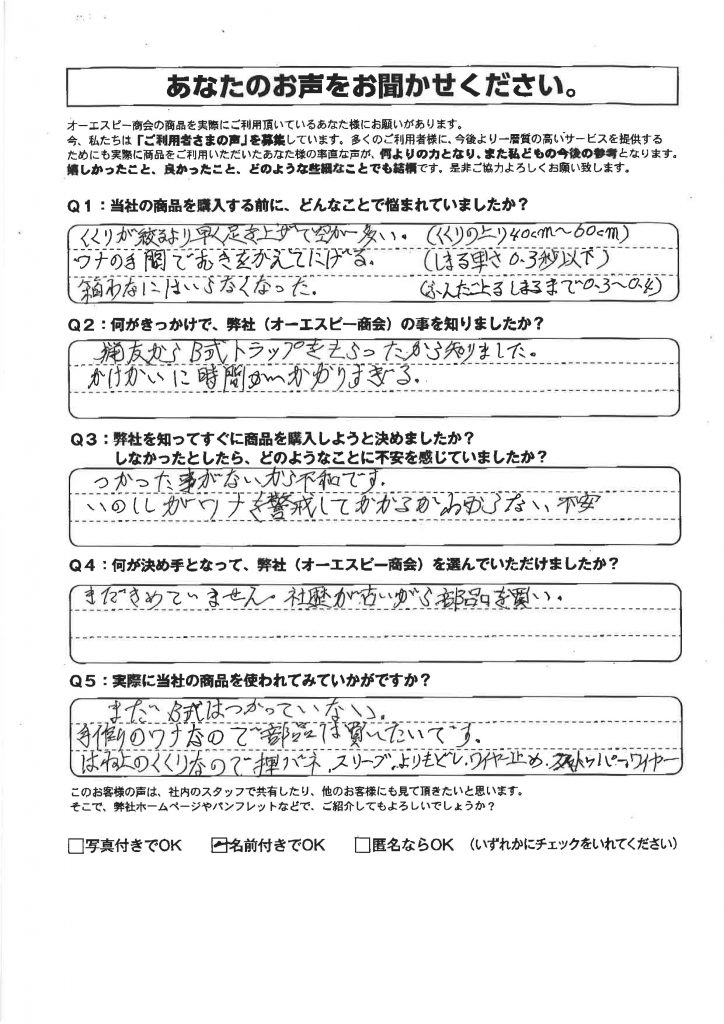 あなたのお声をお聞かせください。
オーエスピー商会の商品を実際にご利用頂いているあなた様にお願いがあります。
今、私たちは「ご利用者さまの声」を募集しています。多くのご利用者様に、今後より一層質の高いサービスを提供する
ためにも実際に商品をご利用いただいたあなた様の事直な声が、何よりの力となり、また私どもの今後の参考となります。
嬉しかったこと、良かったこと、どのような些細なことでも結構です。是非ご協力よろしくお願い致します。
Q1：当社の商品を購入する前に、どんなことで悩まれていましたか？
くくりが絞るより早く足を上げて空が多い。（くくりの上り40cm～60cm）
ワナの手間でむきをかえてにげる。（しまる早さ0.3秒以下）
箱わなにはいらなくなった。（ふんだ よる しまるまで0.3～0.4）
Q2：何がきっかけで、弊社（オーエスピー商会）の事を知りましたか？
猟友からB式トラップをもらったから知りました。
かけかいに時間がかかりすぎる.
Q3：弊社を知ってすぐに商品を購入しようと決めましたか？
しなかったとしたら、どのようなことに不安を感じていましたか？
つかった事がないから不和です.
いのししがワナを警戒してかかるかわからない 不安
Q4：何が決め手となって、弊社（オーエスピー商会）を選んでいただけましたか？
まだきめていません。社歴が古いから部品を買い。
Q5：実際に当社の商品を使われてみていかがですか？
まだB式はつかっていない。
手作りのワナなので部品は買いたいです.
はね上のくくりなので押バネ.スリーブ.よりもどし.ワイヤー止め.ワイヤー
このお客様の声は、社内のスタッフで共有したり、他のお客様にも見て頂きたいと思います。
そこで、弊社ホームページやパンフレットなどで、ご紹介してもよろしいでしょうか？
□写真付きでOK ☑名前付きでOK □匿名ならOK （いずれかにチェックをいれてください）